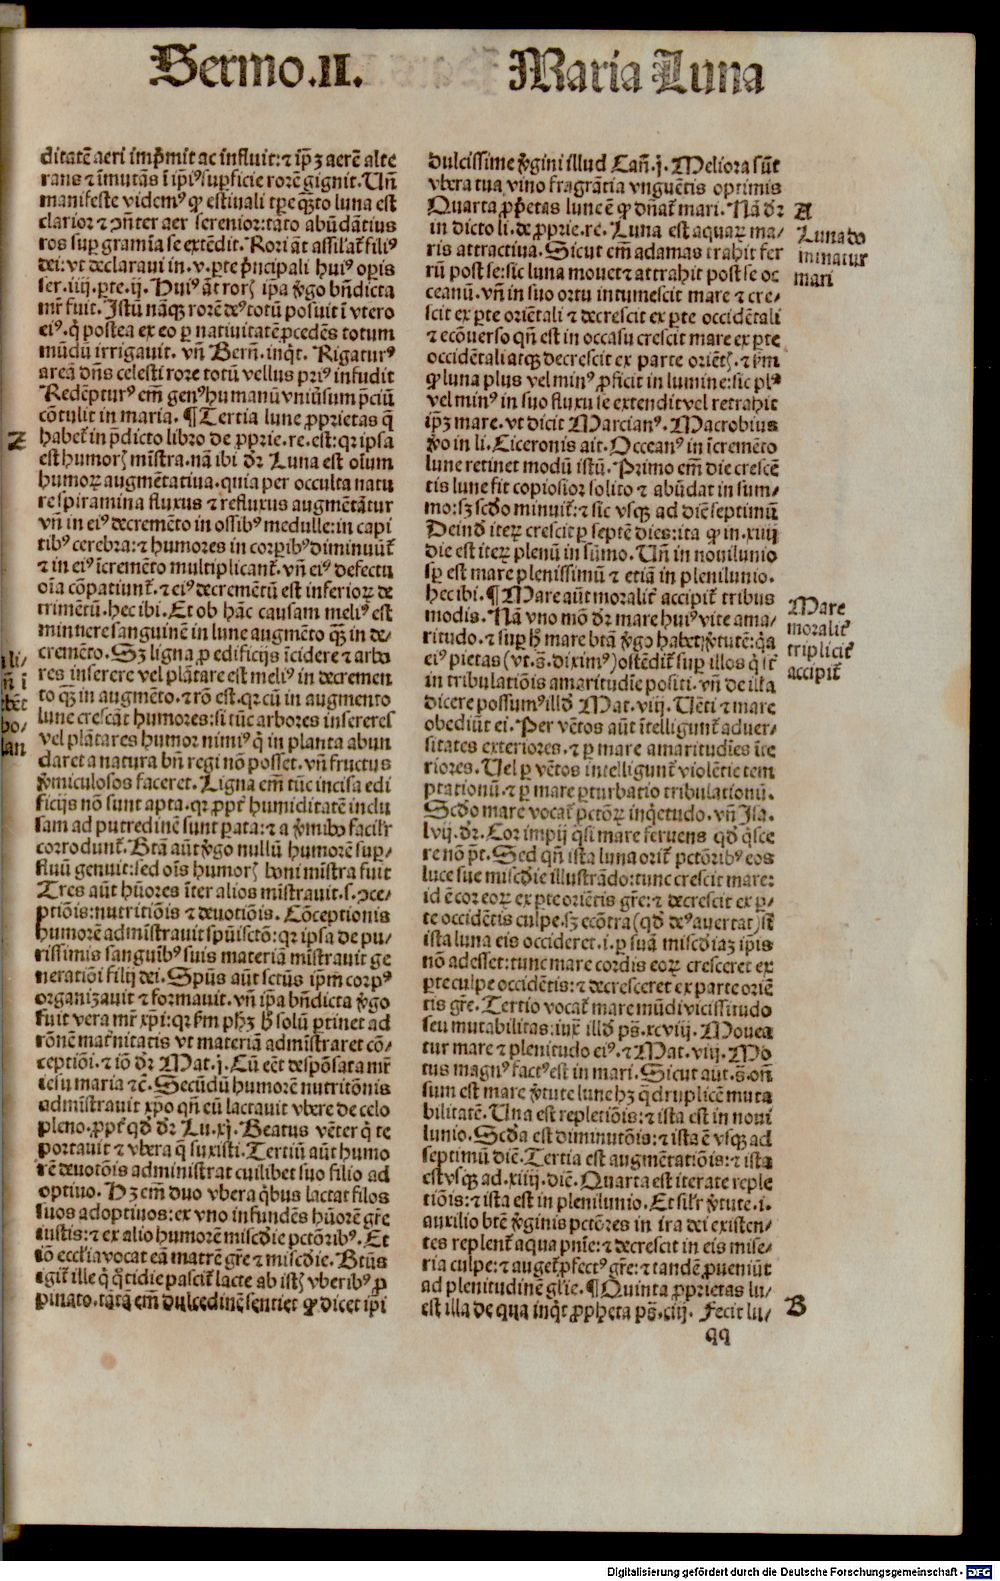 Sermo .II. Maria Luna
ditatē aeri imp̄mit ac influit: ⁊ ip̄ꝫ aerē alte
rans ⁊ īmutās ī ipiꝰ suꝑficie rorē gignit. Un̄
manifeste videmꝰ ꝙ estiuali tꝑe quāto luna est
clarior ⁊ ꝯn̄ter aer serenior: tāto abūdātius
ros suꝑ gramīa se extēdit. Rori āt assilat᷑ filiꝰ
dei: vt declaraui in .v. ꝑte p̄ncipali huiꝰ oꝑis
ser. iiij. ꝑte. ij. Huiꝰ āt roris ip̄a v̄go bn̄dicta
mr̄ fuit. Istū nāqꝫ rorē deꝰ totū posuit ī vtero
eiꝰ. q̇ postea ex eo ꝑ natiuitatē ꝓcedēs totum
mūdū irrigauit. vn̄ Bern̄. inq̇t. Rigaturꝰ
areā dn̄s celesti rore totū vellus priꝰ infudit
Redēpturꝰ em̄ genꝰ humanū vniūsum p̄ciū
cōtulit in maria. ¶ Tertia lune ꝓprietas q̄
habet᷑ in p̄dicto libro de ꝓprie. re. est: qr ipsa
est humorꝫ mīstra. nā ibi dr̄ Luna est oīum
humoꝝ augmētatiua. quia per occulta natu
re spiramina fluxus ⁊ refluxus augmētātur
vn̄ in eiꝰ decremēto in ossibꝰ medulle: in capi
tibꝰ cerebra: ⁊ humores in corꝑibꝰ diminuūt᷑
⁊ in eiꝰ īcremēto multiplicant᷑. vn̄ eiꝰ defectu
oīa cōpatiunt᷑. ⁊ eiꝰ decremētū est inferioꝝ de
trimētū. hec ibi. Et ob hāc causam meliꝰ est
minuere sanguinē in lune augmēto qꝫ̄ in de⸗
cremēto. Sꝫ ligna ꝓ edificijs īcidere ⁊ arbo
res inserere vel plātare est meliꝰ in decremen
to qꝫ̄ in augmēto. ⁊ rō est. qr cū in augmento
lune crescāt humores: si tūc arbores insereres
vel plātares humor nimiꝰ q̇ in planta abun
daret a natura bn̄ regi nō posset. vn̄ fructus
v̄miculosos faceret. Ligna em̄ tūc incisa edi
ficijs nō sunt apta. qr ꝓpt᷑ humiditatē inclu
sam ad putredinē sunt ꝑata: ⁊ a v̄mibꝫ facilr̄
corrodunt᷑. Bt̄a aūt v̄go nullū humorē suꝑ⸗
fluū genuit: sed oīs humorꝫ boni mīstra fuit
Tres aūt hūores īter alios mīstrauit. s. ꝯce⸗
ptiōis: nutritiōis ⁊ deuotiōis. Cōceptionis
humorē admīstrauit spūisctō: qr ipsa de pu⸗
rissimis sanguībꝰ suis materiā mīstrauit ge
neratiōi filij dei. Spūs aūt sctūs ipm̄ corpꝰ
organizauit ⁊ formauit. vn̄ ip̄a bn̄dicta v̄go
fuit vera mr̄ xp̄i: qr fm̄ ph̄ꝫ h̄ solū ꝑtinet ad
rōnē mat̄nitatis vt materiā admīstraret cō⸗
ceptiōi. ⁊ iō dr̄ Mat. j. Cū eēt despōsata mr̄
iesu maria ⁊c̄. Secūdū humorē nutritōnis
admīstrauit xp̄o qn̄ eū lactauit vbere de celo
pleno. ꝓpt᷑ qd̄ dr̄ Lu. xj. Beatus vēter q̇ te
portauit ⁊ vbera q̄ suxisti. Tertiū aūt humo
rē deuotōis administrat cuilibet suo filio ad
optiuo. Hꝫ em̄ duo vbera q̇bus lactat filos
suos adoptiuos: ex vno infundēs hūorē gr̄e
iustis: ⁊ ex alio humorē misc̄die pctōribꝰ. Et
iō ecclia vocat eā matrē gr̄e ⁊ misc̄die. Btūs
igit᷑ ille q̇ q̊tidie pascit᷑ lacte ab istꝫ vberibꝰ ꝓ
pinato. tātā em̄ dulcedinē sentiet ꝙ dicet ip̄i
Z
dulcissime v̄gini illud Cañ. j. Meliora sūt
vbera tua vino fragrātia vnguētis optimis
Quarta ꝓp̄etas lune ē ꝙ dn̄at᷑ mari. Nā dr̄
in dicto li. de ꝓprie. re. Luna est aquaꝝ ma⸗
ris attractiua. Sicut em̄ adamas trahit fer
rū post se: sic luna mouet ⁊ attrahit post se oc
ceanū. vn̄ in suo ortu intumescit mare ⁊ cre⸗
scit ex ꝑte oriētali ⁊ decrescit ex ꝑte occidētali
⁊ ecōuerso qn̄ est in occasu crescit mare ex ꝑte
occidētali atqꝫ decrescit ex parte oriētꝫ. ⁊ fm̄
ꝙ luna plus vel minꝰ ꝓficit in lumine: sic plꝰ
vel minꝰ in suo fluxu se extendit vel retrahit
ip̄ꝫ mare. vt dicit Marcianꝰ. Macrobius
v̊o in li. Ciceronis ait. Occeanꝰ in īcremēto
lune retinet modū istū. Primo em̄ die crescē
tis lune fit copiosior solito ⁊ abūdat in sum⸗
mo: sꝫ scd̊o minuit᷑: ⁊ sic vsqꝫ ad diē septimū
Deind̄ iteꝝ crescit ꝑ septē dies: ita ꝙ in .xiiij
die est iteꝝ plenū in sūmo. Un̄ in nouilunio
sꝑ est mare plenissimū ⁊ etiā in plenilunio.
hec ibi. ¶ Mare aūt moralit᷑ accipit᷑ tribus
modis. Nā vno mō dr̄ mare huiꝰ vite ama⸗
ritudo. ⁊ suꝑ h̄ mare btā v̄go habet v̄tutē: q̄a
eiꝰ pietas (vt .s̄. diximꝰ) ostēdit᷑ suꝑ illos q̇ st̄
in tribulatiōis amaritudīe positi. vn̄ de illa
dicere possumꝰ illd̄ Mat. viij. Uēti ⁊ mare
obediūt ei. Per vētos aūt ītelligunt᷑ aduer⸗
sitates exteriores. ⁊ ꝑ mare amaritudīes īte
riores. Uel ꝑ vētos intelligunt᷑ violētie tem
ptationū. ⁊ ꝑ mare ꝑturbatio tribulationū.
Scd̊o mare vocat᷑ pctōꝝ inq̇etudo. vn̄ Isa.
lvij. dr̄. Cor impij q̄si mare feruens qd̄ q̇sce
re nō pt̄. Sed qn̄ ista luna orit᷑ pctōribꝰ eos
luce sue misc̄die illustrādo: tunc crescit mare:
id ē cor eoꝝ ex ꝑte oriētis gr̄e: ⁊ decrescit ex ꝑ⸗
te occidētis culpe. sꝫ ecōtra (qd̄ deꝰ auertat) si
ista luna eis occideret .i. ꝑ suā misc̄diaꝫ ip̄is
nō adesset: tunc mare cordis eoꝝ cresceret ex
ꝑte culpe occidētis: ⁊ decresceret ex parte oriē
tis gr̄e. Tertio vocat᷑ mare mūdi vicissitudo
seu mutabilitas: iux̄ illd̄ ps̄. xcviij. Mouea
tur mare ⁊ plenitudo eiꝰ. ⁊ Mat. viij. Mo
tus magnꝰ factꝰ est in mari. Sicut aūt .s̄. on̄
sum est mare v̄tute lune hꝫ q̄druplicē muta
bilitatē. Una est repletiōis: ⁊ ista est in noui
lunio. Scd̄a est diminutōis: ⁊ ista ē vsqꝫ ad
septimū diē. Tertia est augmētatiōis: ⁊ ista
est vsqꝫ ad .xiiij. diē. Quarta est iterate reple
tiōis: ⁊ ista est in plenilunio. Et silr̄ v̄tute .i.
auxilio btē v̄ginis pctōres in ira dei existen⸗
tes replent᷑ aqua pnīe: ⁊ decrescit in eis mise⸗
ria culpe: ⁊ auget᷑ ꝓfectꝰ gr̄e: ⁊ tandē ꝓueniūt
ad plenitudinē glīe. ¶ Quinta ꝓprietas lu⸗
est illa de qua inq̇t ꝓpheta ps̄. ciij. Fecit lu⸗
qq
A
Luna do
minatur
mari
Mare
moralit᷑
triplicit᷑
accipit᷑
B
Digitalisierung gefördert durch die Deutsche Forschungsgemeinschaft - DFG